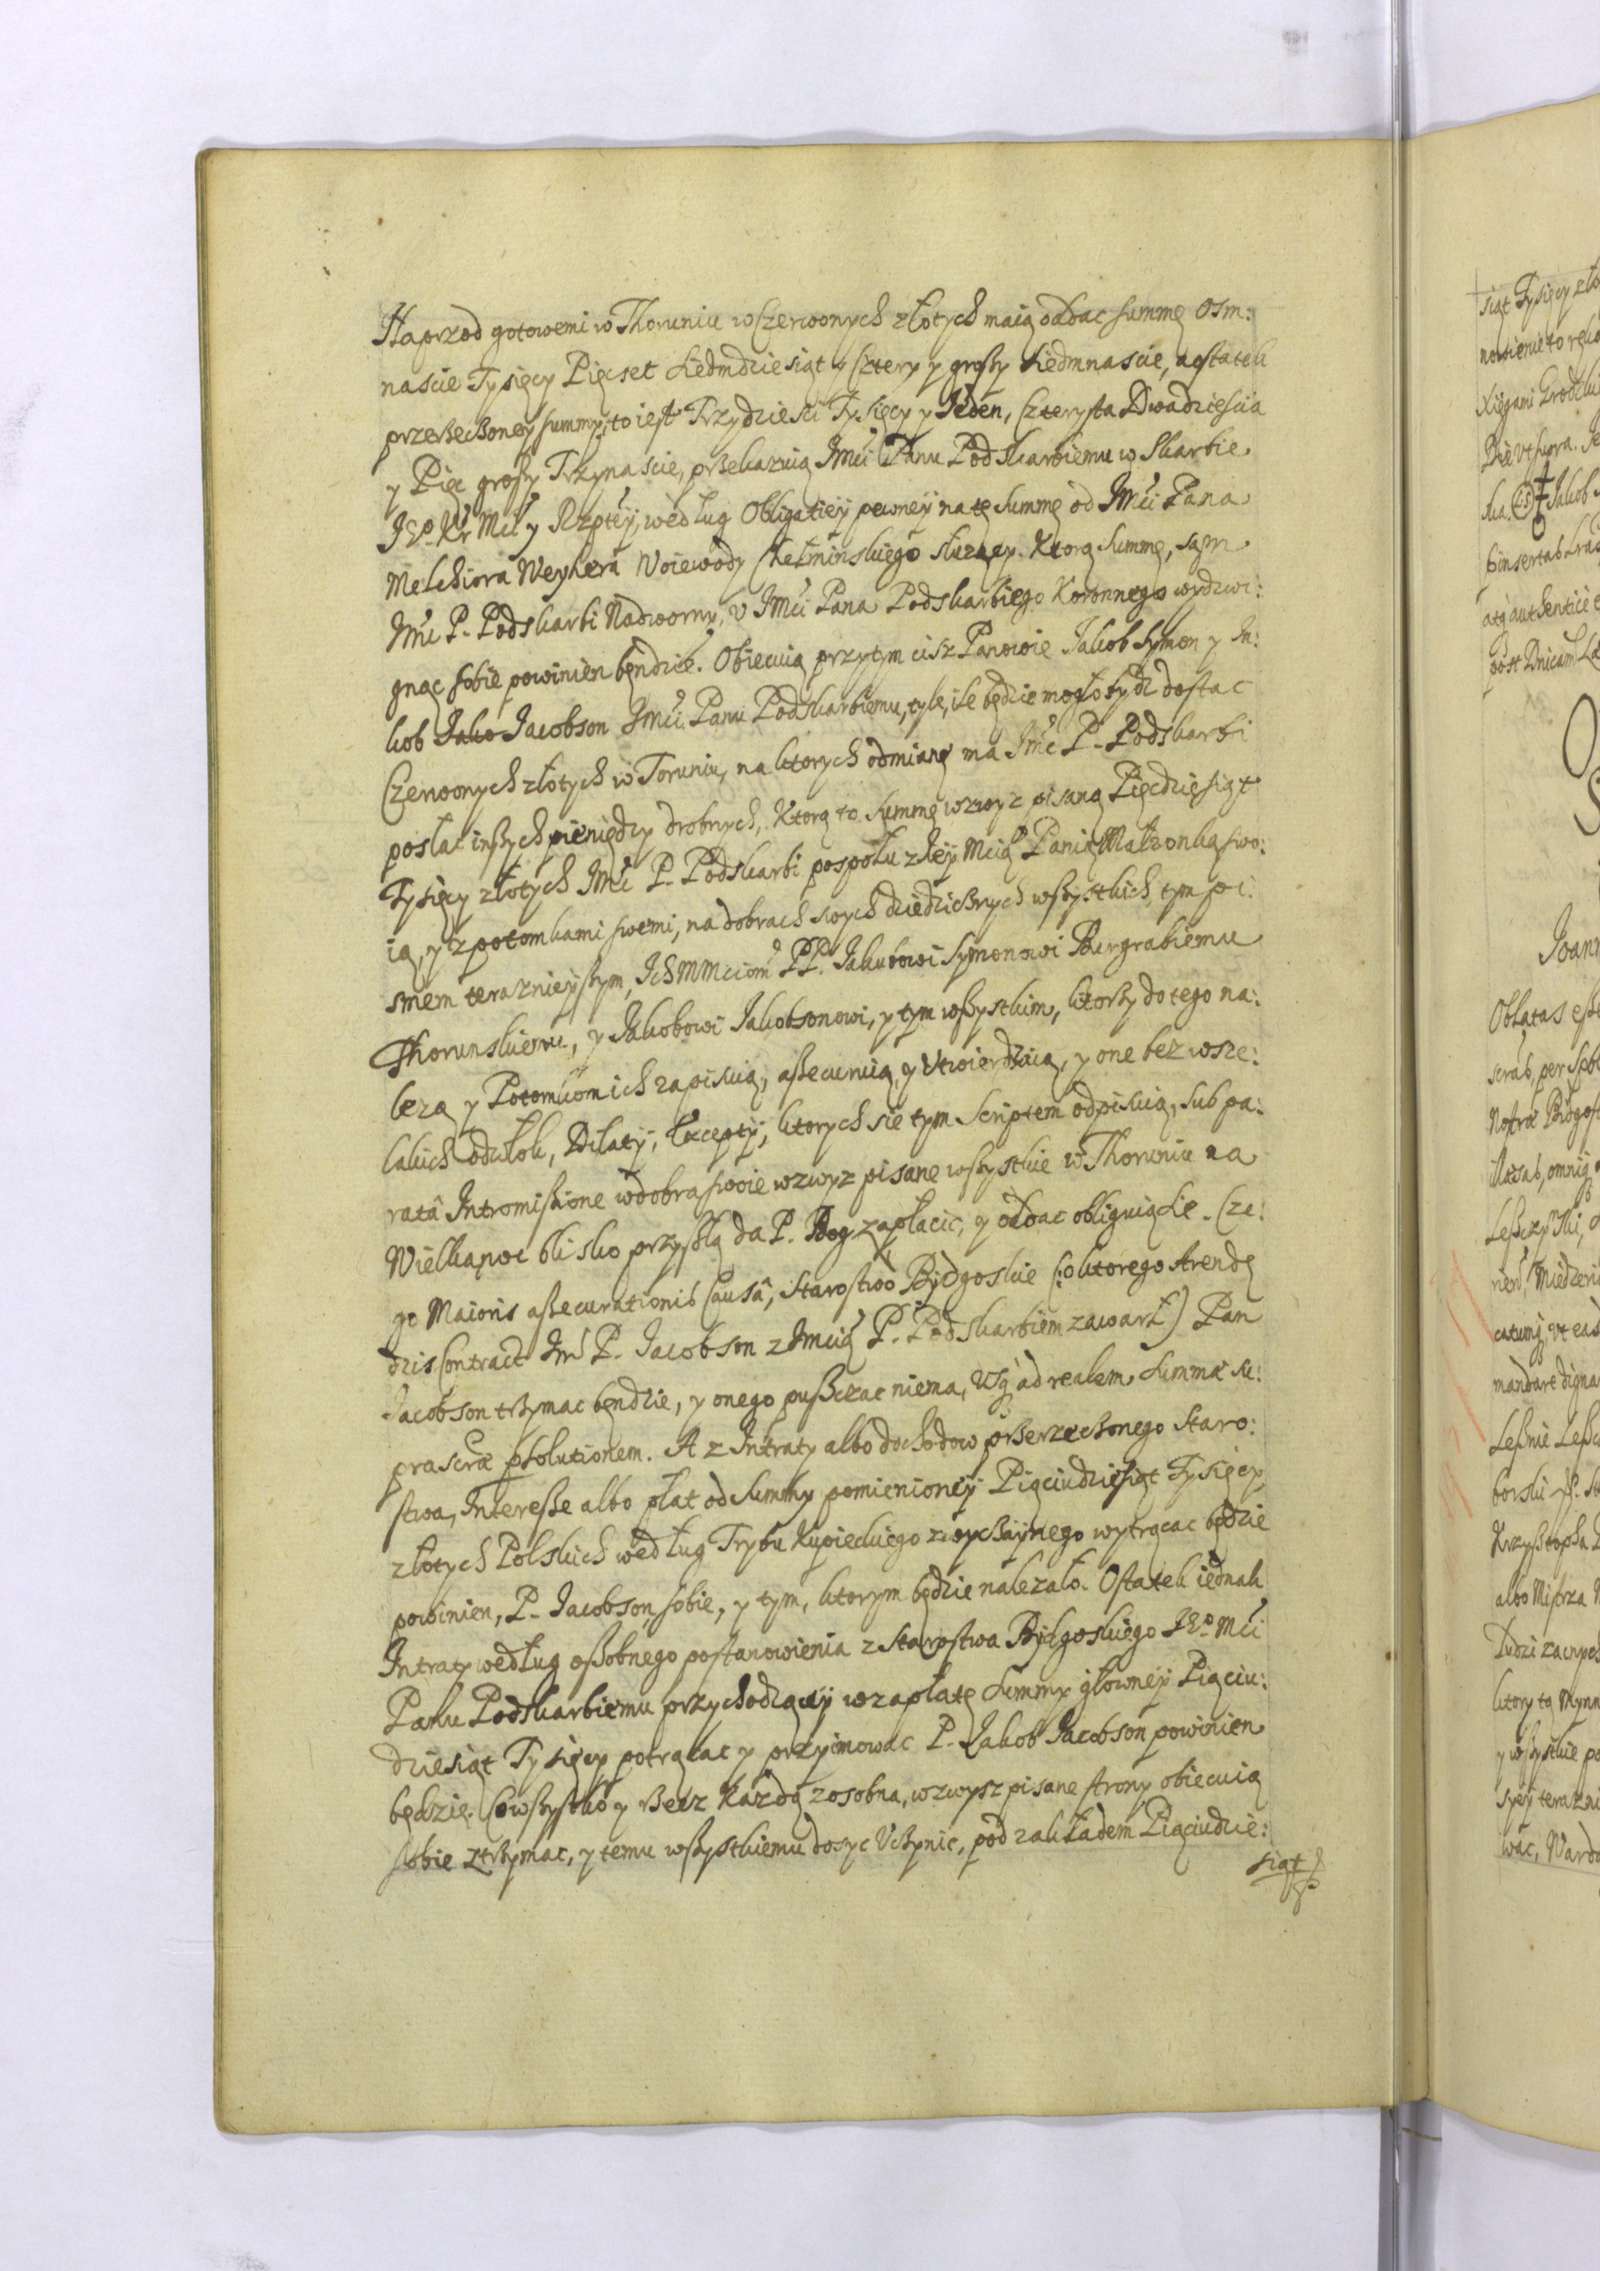 Naprzod gotowemi w Thoruniu w Czerwonych złotych maią oddac summę Osm:
nascie Tysięcy Pięcset siedmdziesiąt y Cztery y groszy siedmnascie, a ostatek
przerzeczoney summy, to iest Trzydziesci Tysięcy y Jeden, Czterysta Dwadziescia
y Pięc groszy Trzynascie, przekazuią Jmci Panu Podskarbiemu w Skarbie
JEo. Kr Mci y Rzptey, według Obligatiey pewney na tę summę od Jmci Pana
Melchiora Weyhera Woiewody Chełminskiego służącey. Ktorą summę, sam
Jmc P. Podskarbi Nadworny, v Jmci Pana Podskarbiego Koronnego wydzwi:
gnąc sobie powinien będzie. Obiecuią przytym ciż Panowie Jakob Symon y Ja:
kob Jako Jacobson Jmci Panu Podskarbiemu, tyle, ile będzie mogło bydz dostac
Czerwonych złotych w Toruniu, na ktorych odmianę ma Jmc P. Podskarbi
posłac inszych pieniędzy drobnych, Ktorą to summę wzwyz pisaną Pięcdziesiąt
Tysięcy złotych Jmc P. Podskarbi pospołu z Jey Mcią Panią Małzonką swo:
ią, y z potomkami swemi, na dobrach swych dziedzicznych wszystkich, tym pi:
smem teraznieyszym, Ich MMciom PP. Jakubowi Symonowi Burgrabiemu
Thorunskiemu, y Jakobowi Jakobsonowi, y tym wszystkim, ktorzy do tego na:
lezą y Potomkom ich zapisuią, assecuruią, y Vtwierdzaią, y one bez wsze:
lakich odwłok, Dilatiy, Excepty, ktorych sie tym scriptem odpisuią, sub pa:
ratâ Intromissione w dobra swoie wzwyz pisane wszystkie w Thoruniu na
Wielkąnoc blisko przyszłą da P. Bog zapłacic, y oddac obliguią sie. Cze:
go Maioris assecurationis Causâ, Starostwo Bydgoskie (: o ktorego Arendę
dzis Contract Jmc P. Jacobson z Jmcią P. Podskarbiem zawarł) Pan
Jacobson trzymac będzie, y onego puszczac niema, Vsq ad realem summæ su:
prascræ psolutionem. A z Intraty albo dochodow przerzeczonego Staro:
stwa, Interesse albo płat od summy pomienioney Piąciudziesiąt Tysięcy
złotych Polskich według Trybu Kupieckiego zwyczaynego wytrącac będzie
powinien, P. Jacobson sobie, y tym, ktorym będzie nalezało. Ostatek iednak
Intraty według osobnego postanowienia z Starostwa Bydgoskiego JEo. Mci
Panu Podskarbiemu przychodzącey w zapłatę summy głowney Piąciu:
dziesiąt Tysięcy potrącac y przyimowac P. Jakob Jacobson powinien
będzie. Co wszystko y rzecz każdą zosobna, wzwysz pisane strony obiecuią
sobie ztrzymac, y temu wszystkiemu dosyc Vczynic, pod zakładem Piąciudzie:
siąt
siąt Tysięcy zło
Joann
Oblatas esse